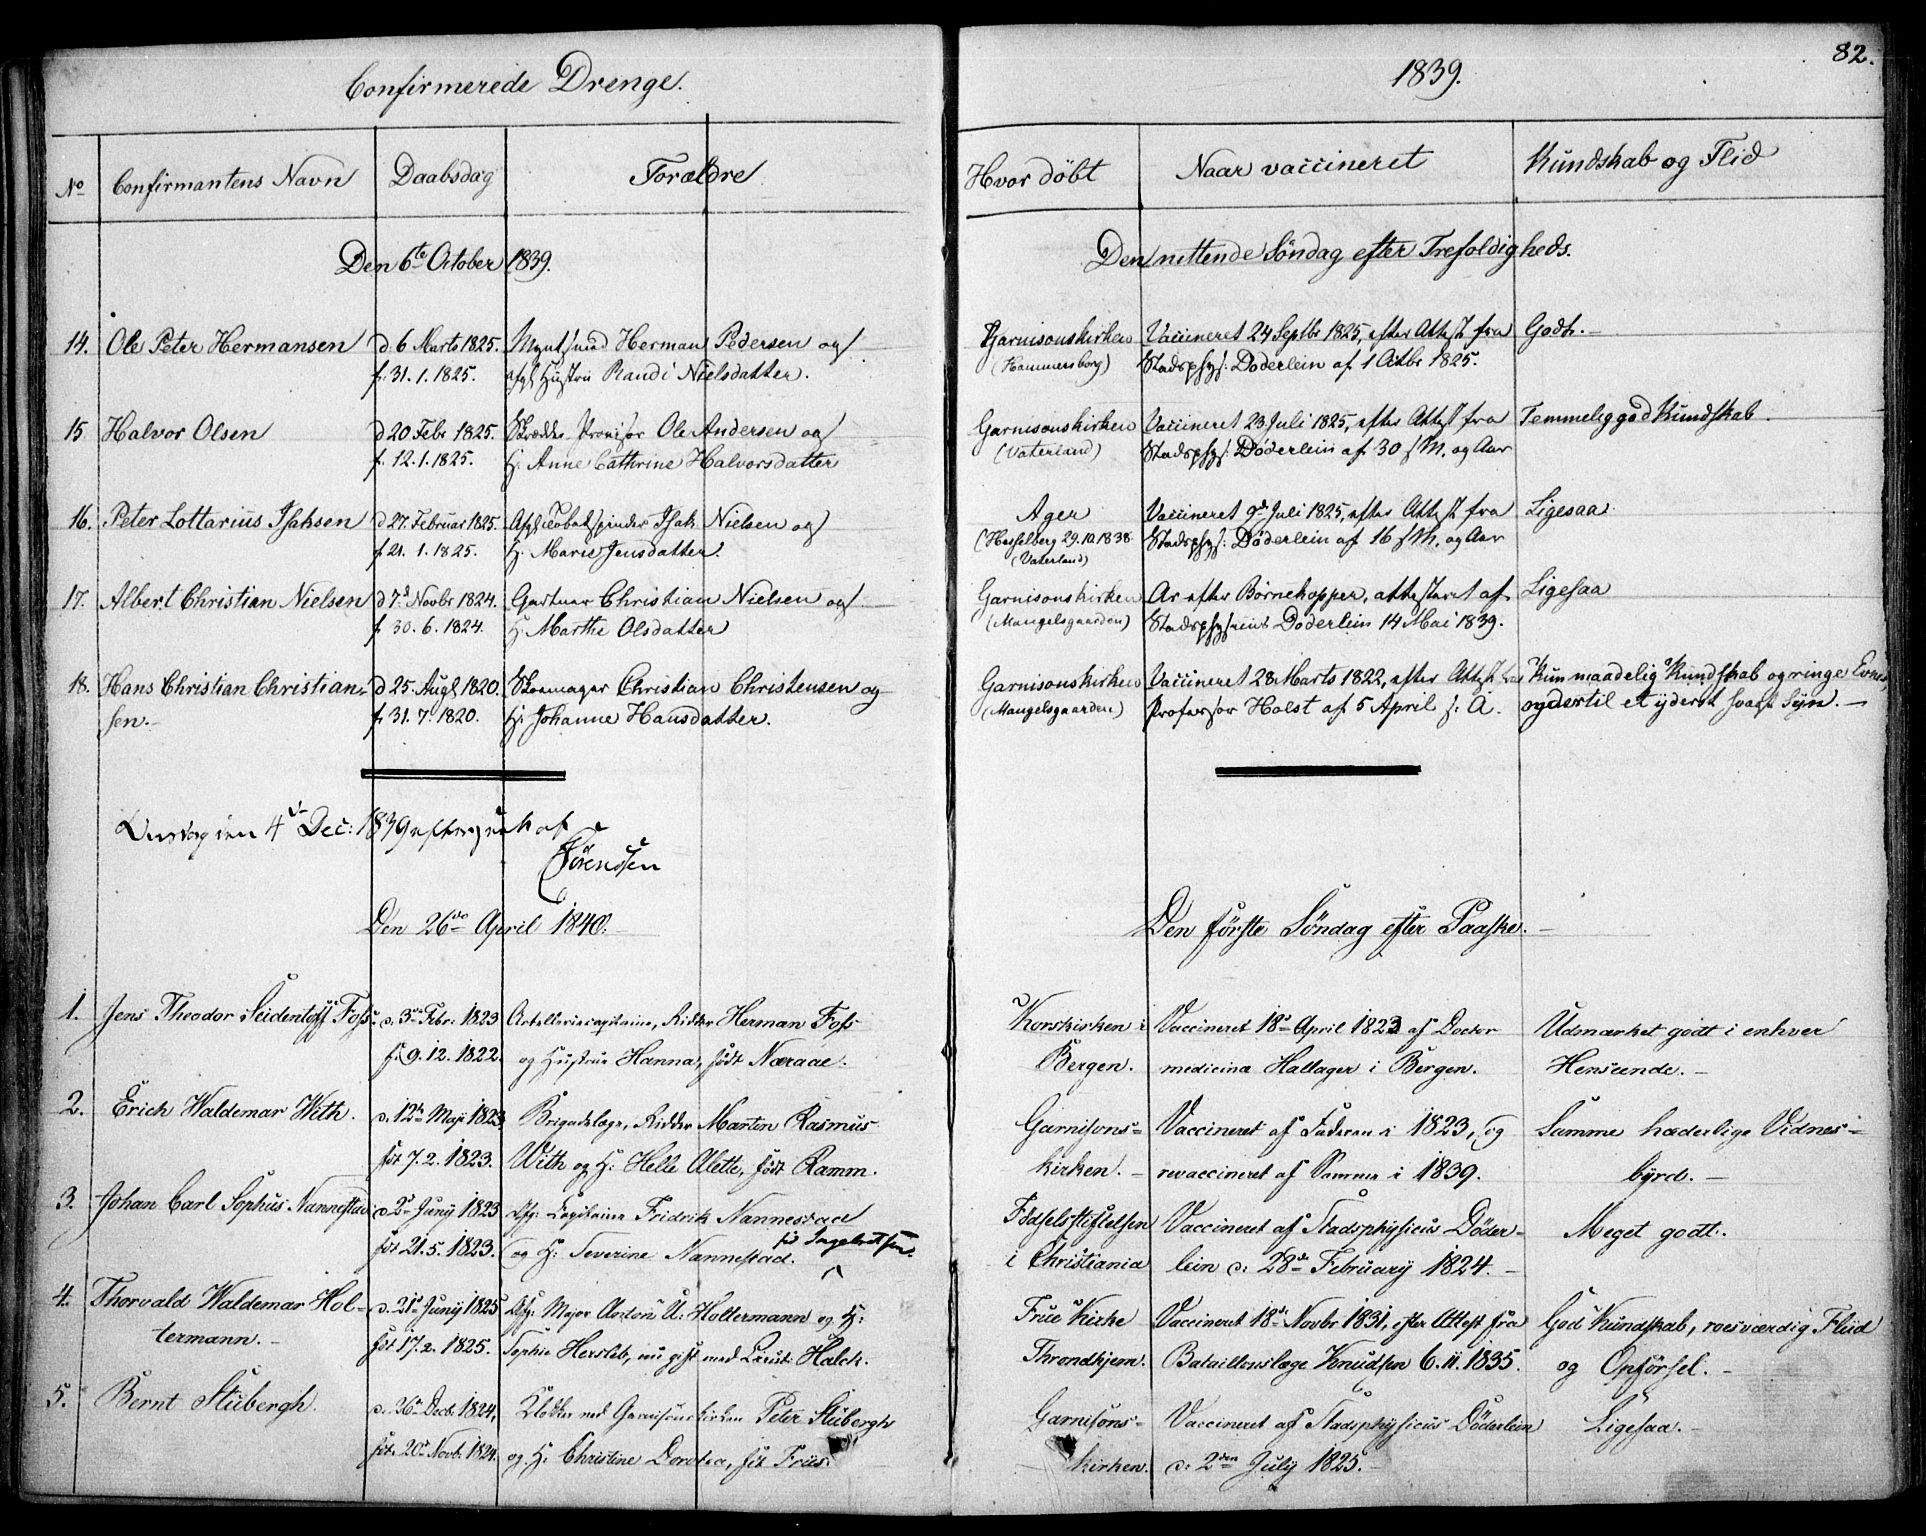 82.
Confirmerede Drenge.
1839.
No Confirmantens Navn Daabsdag Forældre Hvor döbt Naar vaccineret Kundskab og Flid
Den 6te October 1839. Den nittende Söndag efter Trefoldigheds.
14. Ole Peter Hermansen d 6 Marts 1825. Myntsmed Herman Pedersen og Garnisonskirken Vaccineret 24 Septbr 1825, efter Attest fra Godt.
f. 31. 1. 1825. Hustru Randi Nielsdatter. (Hammersborg) Stadsphys: Döderlein af 1 Octbr 1825.
15 Halvor Olsen d 20 Febr 1825. Ole Andersen og Garnisonskirken Vaccineret 23 Juli 1825, efter Attest fra Temmelig god Kundskab.
f. 12. 1. 1825. H. Anne Cathrine Halvorsdatter (Vaterland) Stadsphys: Döderlein af 30 s. M. og Aar
16. Peter Lottarius Isaksen d 27. Februar 1825. Isak Nielsen og Ager Vaccineret 9d Juli 1825, efter Attest fra Ligesaa
f. 21. 1. 1825. H. Marie Jensdatter. (Hesselberg 29.10.1838 Stadsphys: Döderlein af 16 s. M. og Aar
(Vaterland)
17. Albert Christian Nielsen d 7d Novbr 1824. Gartner Christian Nielsen og Garnisonskirken Ar efter Børnekopper, attesteret af Ligesaa
f. 30. 6. 1824. H. Marthe Olsdatter (Mangelsgaarden) Stadsphysicus Döderlein 14 Mai 1839.
18. Hans Christian Christian- d 25 Augt 1820. Skomager Christian Christensen og Garnisonskirken Vaccineret 28 Marts 1822, efter Attest Kun maadelig Kundskab og ringe Evner,
sen. f. 31. 7. 1820. H: Johanne Hansdatter. (Mangelsgaarden) Professor Holst af 5 April s: A. og dertil et yderst svagt Syn.
Onsdag den 4de Dec: 1839 af
Sörenssen
Den 26de April 1840. Den förste Söndag efter Paaske.
1. Jens Theodor Seidentopff Foss d. 3die Febr. 1823 Artelleriecapitaine, Ridder Herman Foss Korskirken i Vaccineret 18de April 1823 af Doctor Udmærket godt i enhver
f. 9. 12. 1822. og Hustrue Hanna, födt Næraae. Bergen. medicinæ Hallager i Bergen. Henseende.
2. Erich Waldemar With. d. 12te Maji 1823 Brigadelæge, Ridder Martin Rasmus Garnisons- Vaccineret af Faderen i 1823, og Samme hæderlige Vidnes-
föt 7. 2. 1823. With og H: Helle Alette, födt Ramm. kirken. revaccineret af Samme i 1839. byrd.
3. Johan Carl Sophus Nannestad d. 2den Junij 1823 Afg: Capitaine Fridrik Nannestad Födselsstiftelsen Vaccineret af Stadsphysicus Döder- Meget godt.
föt 21. 5. 1823. og H: Severine Nannestad. föt Ingebretsen i Christiania lein d. 28de February 1824.
4. Thorvald Waldemar Hol- d. 21de Junij 1825 Afg: Major Anton U: Holtermann og H: Frue Kirke Vaccineret 18de Novbr 1831, efter Attest fra God Kundskab, roesværdig Fliid
termann. föt 17. 2. 1825. Sophie Hersleb, nu gift med Halck. Throndhjem. Bataillonslæge Knudsen 6. 11. 1835. og Opförsel.
5. Bernt Stubergh. d. 26de Decb. 1824, Klokker ved Garnisonskirken Peter Stubergh Garnisons- Vaccineret af Stadsphysicus Döderlein Ligesaa.
föt. 20de Novb. 1824. og H: Christine Dorotea, föt Friis. kirken. d. 2den July 1825.